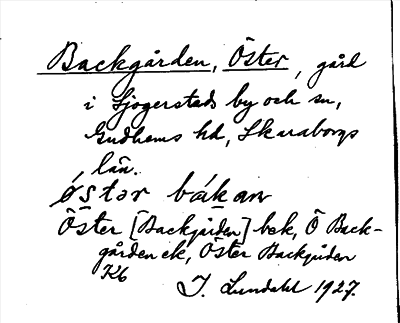 Backgården, Öster, gård
i Sjogerstads by och sn,
Gudhems hd, Skaraborgs
län.
östər bákaɴ
Öster [Backgården] bek, Ö Back-
gården ek, Öster Backgården
Kb
I. Lundahl 1927.